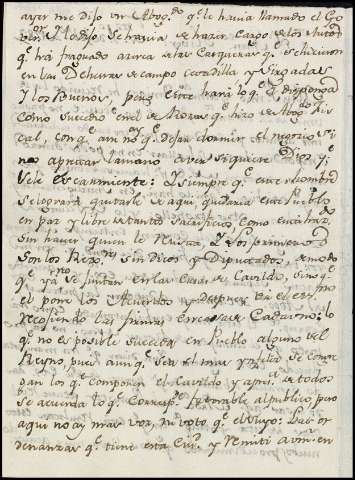 ayer me dijo un Abog.do q.e le havia llamado el Go
y le dijo se havia de hacer Cargo de los Autos
q.e ha fraguado acerca de las q.e se hicieron
en las Dehesas de campo y Sirgadas
y los Buenos, pues este hará lo q.e
como sucedio en el de Moras q.e hizo de Abog.do Fis
cal, con q.e no q.e dejar dormir el negocio si
no apretar la mano a ver si quiere Dios q.e
este escarmiente: Y siempre q.e este hombre
se lograra quitarle de aqui quedaria este Pueblo
en paz y libre de tantos sacrificios como
sin haver quien le Resista. Los primeros
son los Reg.res Sindicos y Diputados, de modo
q.e ya no se juntan en las Casas de Cavildo, sino q.e
el pone los Acuerdos y despues el es.no
recogiendo las firmas en casa de Cada uno: lo
q.e no es posible suceda en Pueblo alguno del
Reyno, pues aunq.e sea el mas se con
dan los q.e componen el Cavildo y de todos
se acuerda lo q.e favorable al publico, pero
aqui no ay mas voz, ni voto q.e el Suyo: Las or
denanzas q.e tiene esta Ciu.d y Remiti a vm. en